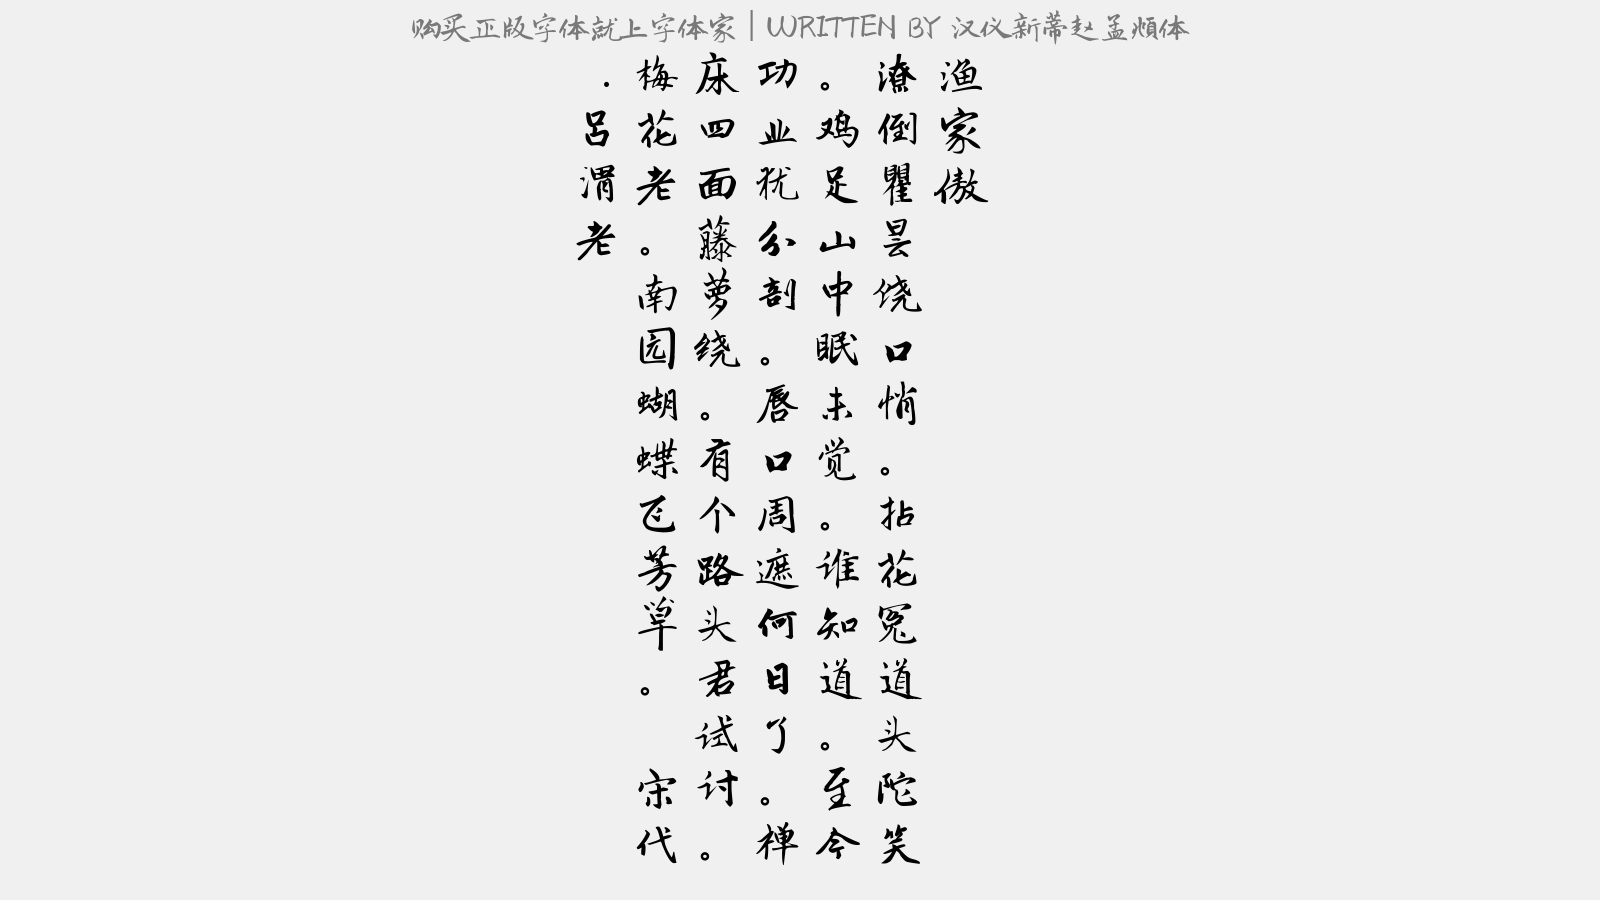 购买正版字体就上字体家|WRITTEN BY 汉仪新蒂赵孟頫体
渔家傲
潦倒瞿昙饶口悄。拈花冤道头陀笑
。鸡足山中眠未觉。谁知道。至今
功业犹分剖。唇口周遮何日了。禅
床四面藤萝绕。有个路头君试讨。
梅花老。南园蝴蝶飞芳草。 宋代
.吕渭老